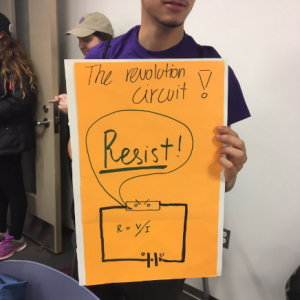 The revolution !
circuit
Resist!
R = V/I